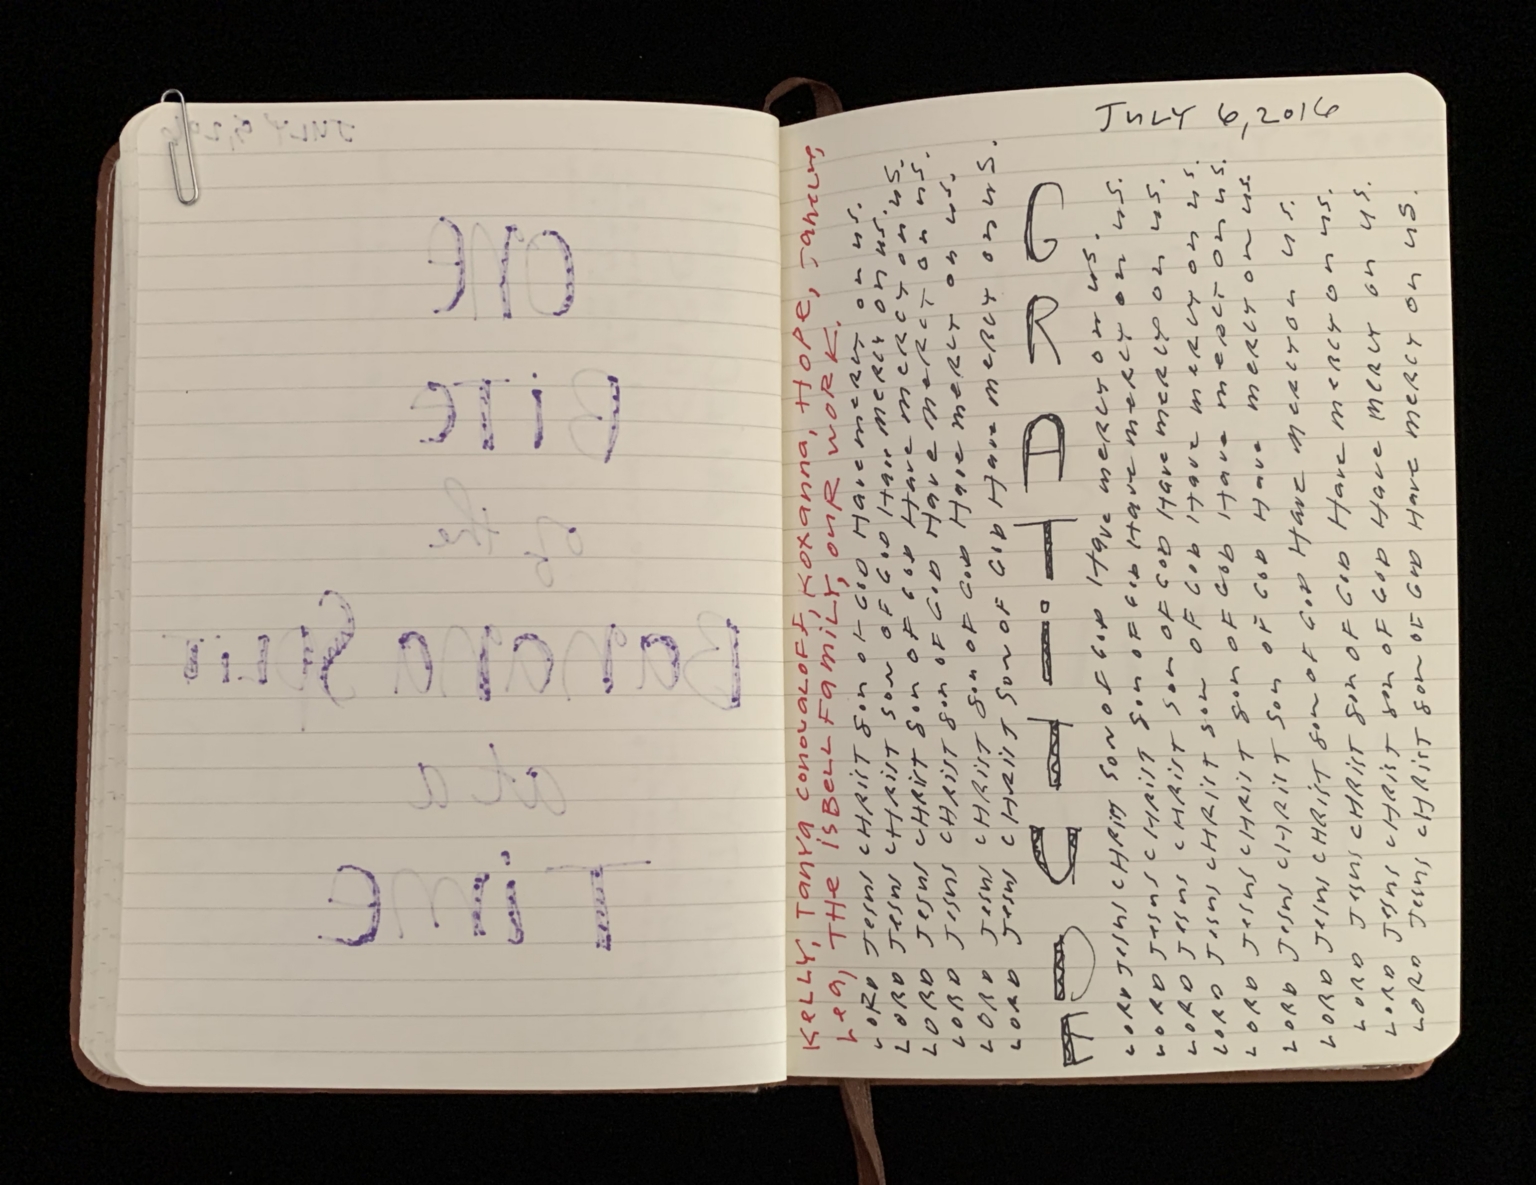 JULY 5, 2016
ONE
BITE
of the
Banana SPLIT
at a
TIME
JULY 6, 2016
KELLY, Tanya CONOVALOFF, ROXANNA, HOPE,
Lea, THE ISBELL FAMILY, OUR WORK.
LORD Jesus CHRIST Son OF GOD Have mercy on us.
LORD Jesus CHRIST Son OF GOD Have mercy on us.
LORD Jesus CHRIST Son OF GOD Have mercy on us.
LORD Jesus CHRIST Son OF GOD Have mercy on us.
LORD Jesus CHRIST Son OF GOD Have mercy on us.
LORD Jesus CHRIST Son OF GOD Have mercy on us.
GRATITUDE
LORD Jesus CHRIST Son OF GOD Have mercy on us.
LORD Jesus CHRIST Son OF GOD Have mercy on us.
LORD Jesus CHRIST Son OF GOD Have mercy on us.
LORD Jesus CHRIST Son OF GOD Have mercy on us.
LORD Jesus CHRIST Son OF GOD Have mercy on us.
LORD Jesus CHRIST Son OF GOD Have mercy on us.
LORD Jesus CHRIST Son OF GOD Have mercy on us.
LORD Jesus CHRIST Son OF GOD Have mercy on us.
LORD Jesus CHRIST Son OF GOD Have mercy on us.
LORD Jesus CHRIST Son OF GOD Have mercy on us.